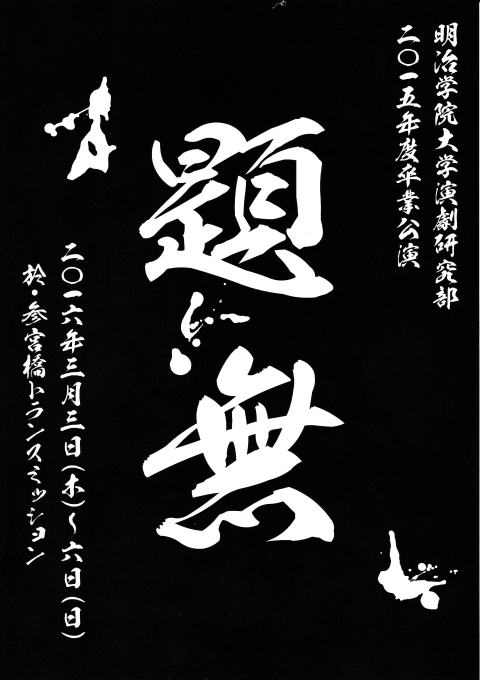 明治学院大学演劇研究部
二〇一五年度卒業公演
題無
二〇一六年三月三日(木)~六日(日)
於・参宮橋トランスミッション